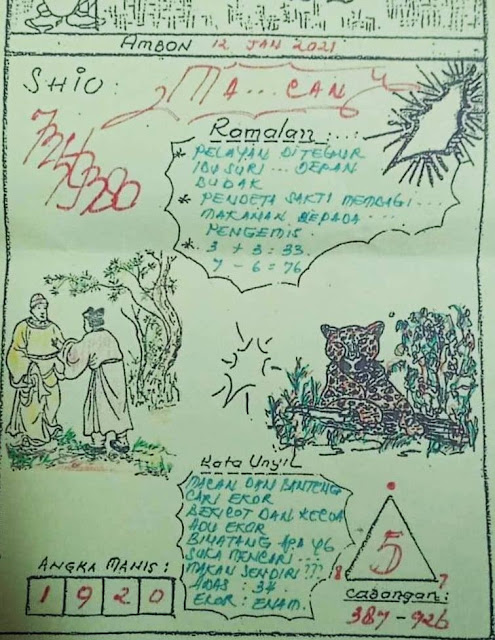 AMBON 12 JAN 2021
SHIO:
MA... CAN
Ramalan:...
* PELAYAN DITEGUR
IBU SURI... DEPAN
BUDAK
* PENDETA SAKTI MEMBAGI...
MAKANAN KEPADA...
PENGEMIS
* 3 + 3 = 33.
7 - 6 = 76
Kata Unyil
MACAN DAN BANTENG
CARI EKOR
BEKICOT DAN KECOA
ADU EKOR
BINATANG APA YG
SUKA MENCARI...
MAKAN SENDIRI ???
AWAS : 34.
EKOR : ENAM.
ANGKA MANIS:
1 9 2 0
5
8 7
Cabangan:
387 - 926